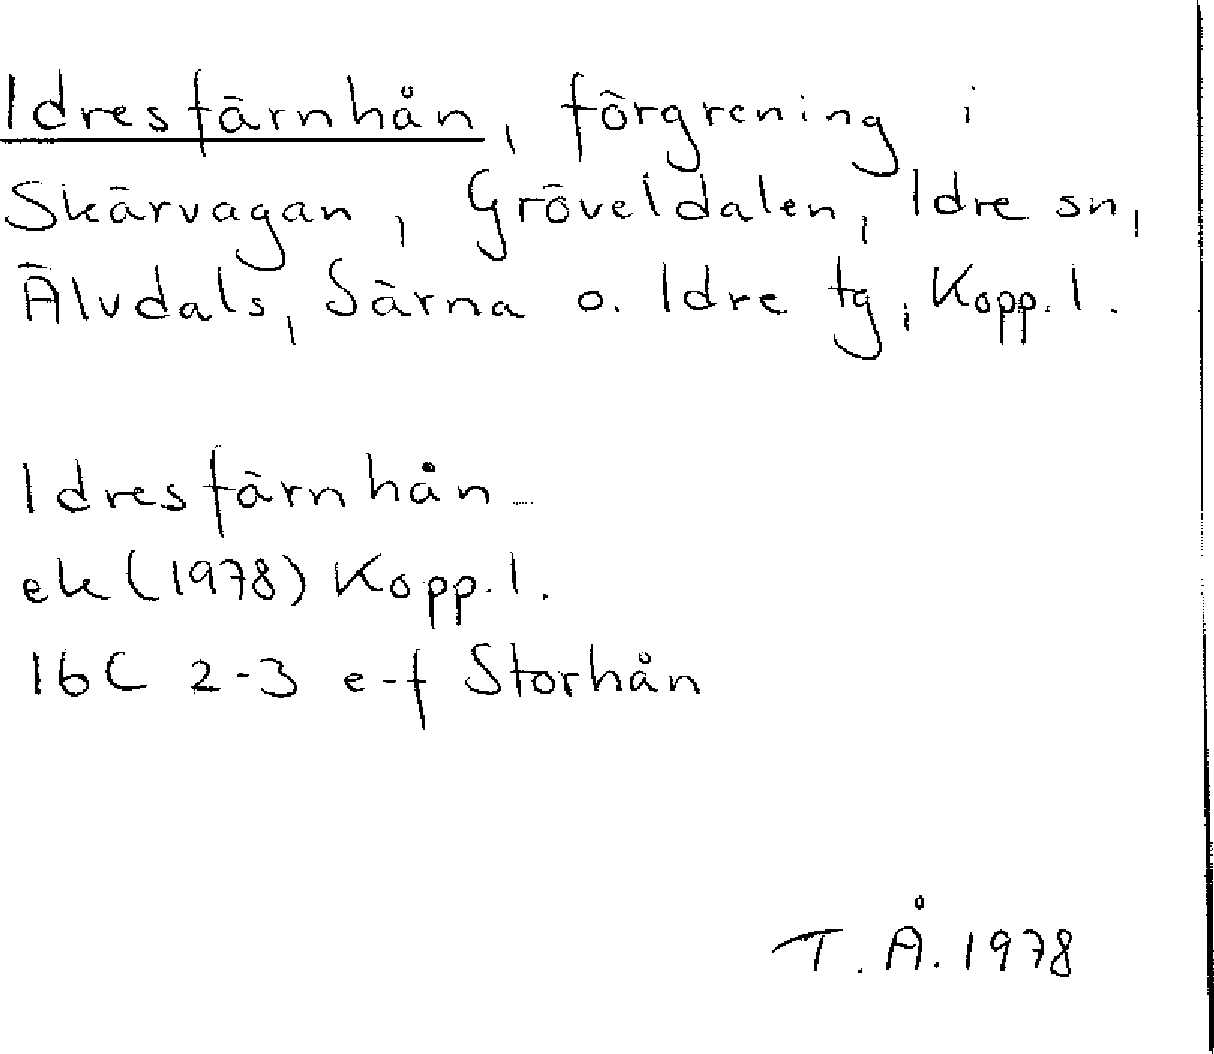 Idresfärnhån, förgrening i
Skärvagan, Gröveldalen, Idre sn,
Älvdals, Särna o. Idre tg, Kopp. l.
Idresfärnhån
ek (1978) Kopp. l.
16C 2-3 e-f Storhån
T. Å. 1978